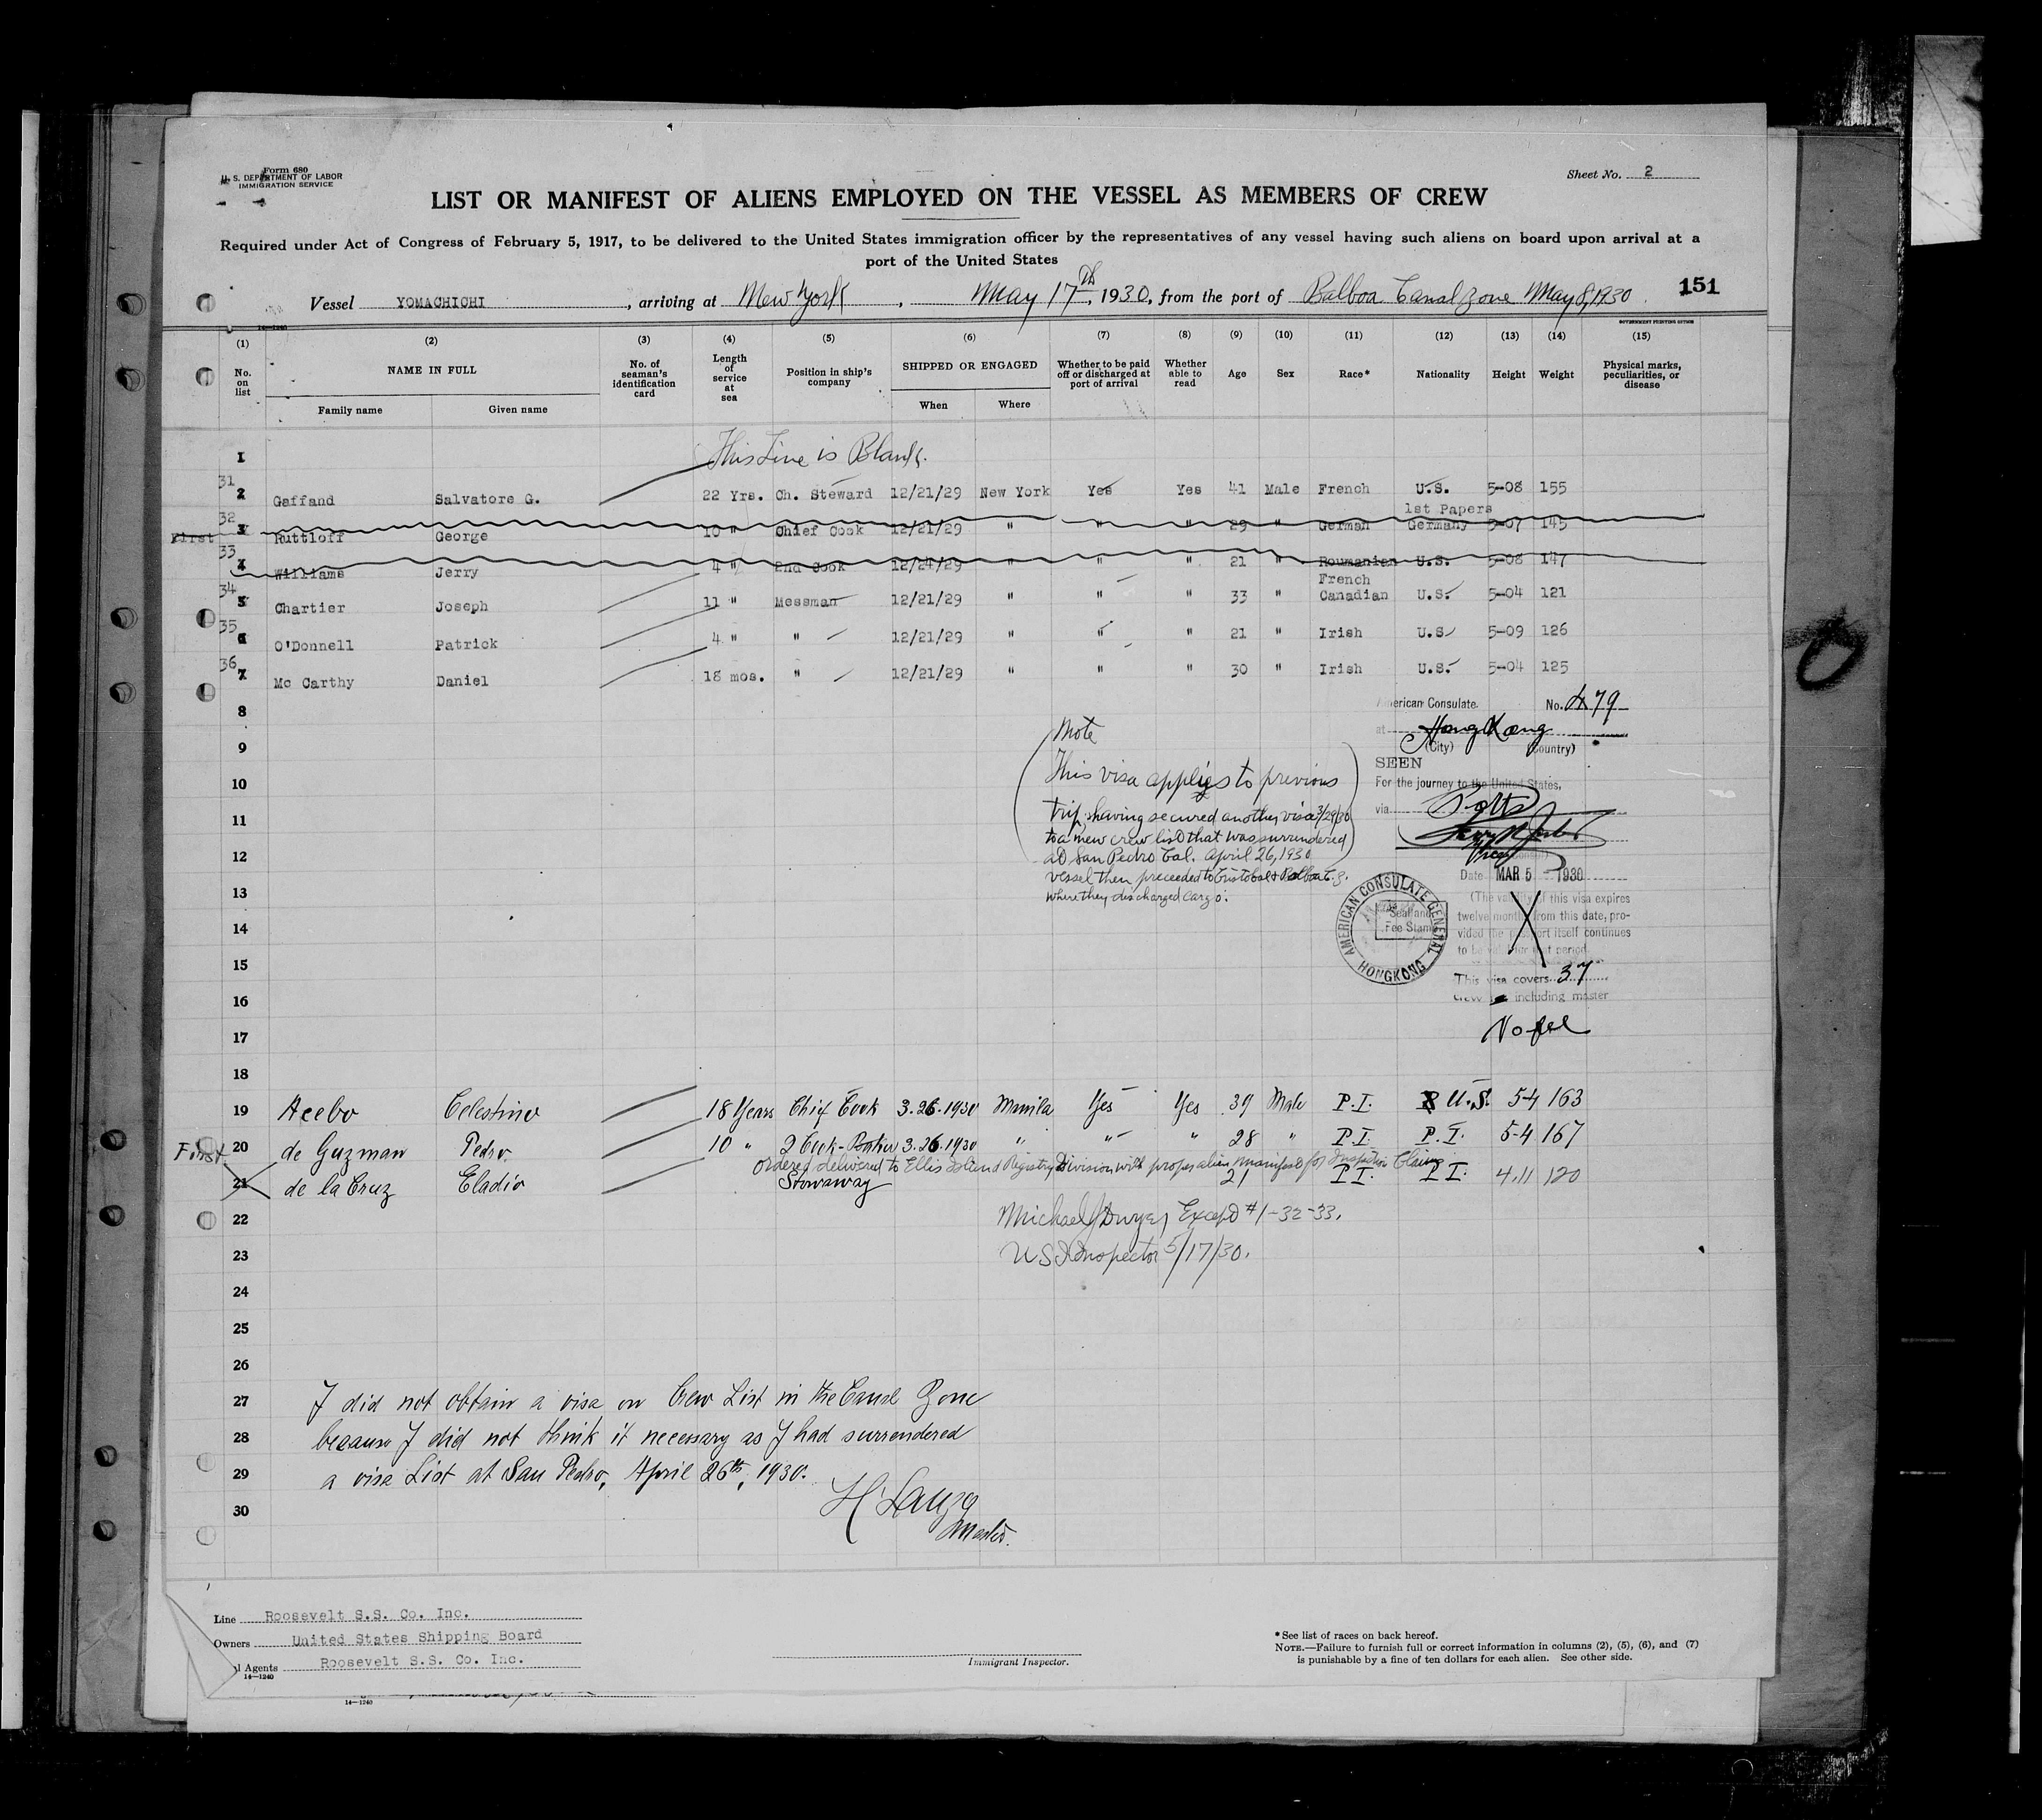 Form 680
U. S. DEPARTMENT OF LABOR
IMMIGRATION SERVICE
Sheet No. 2
LIST OR MANIFEST OF ALIENS EMPLOYED ON THE VESSEL AS MEMBERS OF CREW
Required under Act of Congress of February 5, 1917, to be delivered to the United States immigration officer by the representatives of any vessel having such aliens on board upon arrival at a
port of the United States
Vessel YOMACHICHI, arriving at New York, May 17th, 1930, from the port of Balboa Canal Zone May 8, 1930
151
14—1240
GOVERNMENT PRINTING OFFICE
(1) (2) (3) (4) (5) (6) (7) (8) (9) (10) (11) (12) (13) (14) (15)
No. on list
NAME IN FULL
Family name
Given name
No. of seaman's identification card
Length of service at sea
Position in ship's company
SHIPPED OR ENGAGED
When
Where
Whether to be paid off or discharged at port of arrival
Whether able to read
Age
Sex
Race*
Nationality
Height
Weight
Physical marks, peculiarities, or disease
1 This Line is Blank.
31 2 Gaffand Salvatore G. 22 Yrs. Ch. Steward 12/21/29 New York Yes Yes 41 Male French U.S. 5-08 155
1st Papers
First 32 3 Ruttloff George 10 " Chief Cook 12/21/29 " " " 29 " German Germany 5-07 145
33 4 Williams Jerry 4 " 2nd Cook 12/24/29 " " " 21 " Roumanian U.S. 5-08 147
34 5 Chartier Joseph 11 " Messman 12/21/29 " " " 33 " French Canadian U.S. 5-04 121
35 6 O'Donnell Patrick 4 " " 12/21/29 " " " 21 " Irish U.S. 5-09 126
36 7 Mc Carthy Daniel 18 mos. " 12/21/29 " " " 30 " Irish U.S. 5-04 125
8
9
10
11
12
13
14
15
16
17
18
American Consulate No. 479
at Hong Kong
(City) (Country)
SEEN
For the journey to the United States,
via
Vice
Date MAR 5 1930
(The validity of this visa expires
twelve months from this date, pro-
vided the passport itself continues
to be valid for that period.
This visa covers 37
crew including master
No fee
AMERICAN CONSULATE GENERAL
HONGKONG
Seal and
Fee Stamp
Note
This visa applies to previous
trip, having secured another visa 3/29/30
to a new crew list that was surrendered
at San Pedro Cal. April 26, 1930
vessel then preceeded to Cristobal & Balboa C.Z.
where they discharged cargo.
19 Acebo Celestino 18 Years Chief Cook 3.26.1930 Manila Yes Yes 39 Male P.I. U.S. 5-4 163
First 20 de Guzman Pedro 10 " 2 Cook-Baker 3.26.1930 " " " 28 " P.I. P.I. 5-4 167
Ordered delivered to Ellis Island Registry Division with proper alien manifest for Inspection
21 de la Cruz Eladio Stowaway 21 P.I. P.I. 4.11 120
22 Michael J Dwyer Except #1-32-33.
23 U S I Inspector 5/17/30.
24
25
26
27 I did not obtain a visa on Crew List in the Canal Zone
28 because I did not think it necessary as I had surrendered
29 a visa List at San Pedro, April 26th, 1930.
30
Master.
Line Roosevelt S.S. Co. Inc.
Owners United States Shipping Board
Agents Roosevelt S.S. Co. Inc.
14—1240
Immigrant Inspector.
* See list of races on back hereof.
NOTE.—Failure to furnish full or correct information in columns (2), (5), (6), and (7)
is punishable by a fine of ten dollars for each alien. See other side.
14—1240